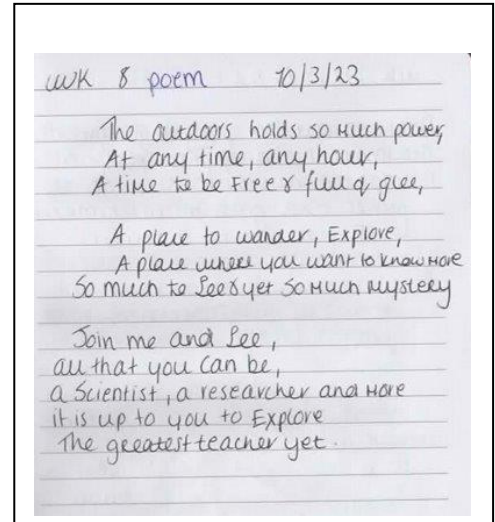 WK 8 poem 10/3/23
The outdoors holds so much power,
At any time, any hour,
A time to be Free & full of glee,
A place to wander, Explore,
A place where you want to know more
So much to See & yet So much mystery
Join me and See,
all that you Can be,
a Scientist, a researcher and more
it is up to you to Explore
The greatest teacher yet.